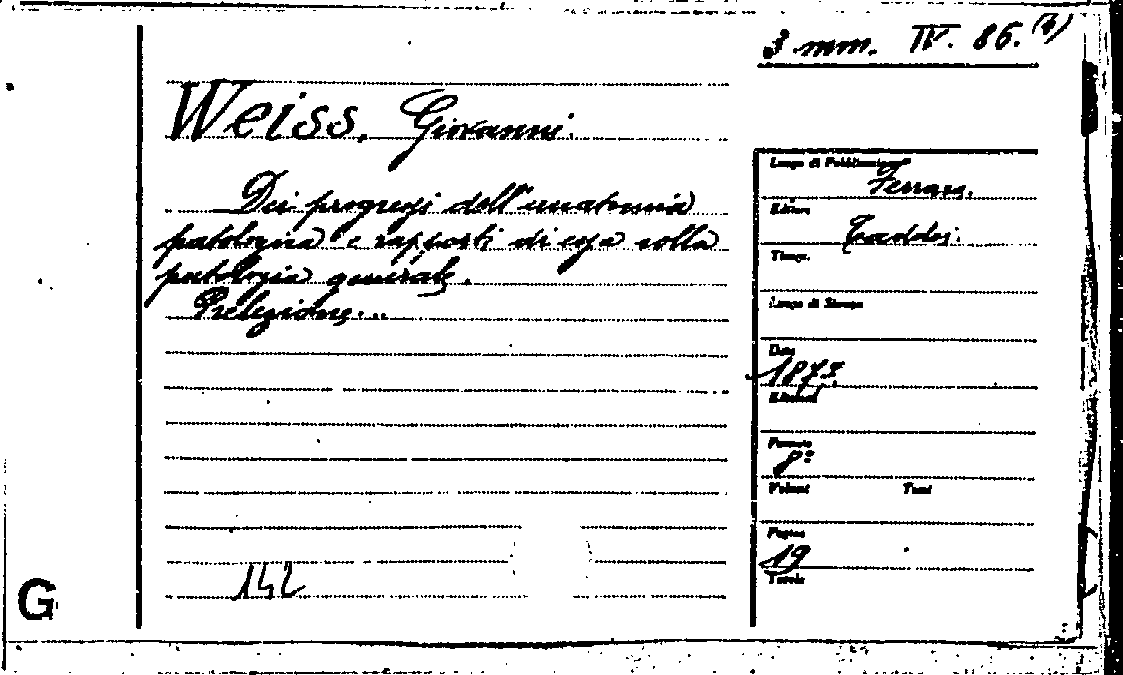 3 mm. IV. 86. (4)
Weiss, Giovanni.
Dei progressi dell'anatomia
patologica e rapporti di essa colla
patologia generale.
Prelezione...
142
G
Luogo di Pubblicazione
Ferrara.
Editore
Taddei.
Tipogr.
Luogo di Stampa
Data
1873.
Edizione
Formato
8°
Volumi Tomi
Pagine
19
Tavole